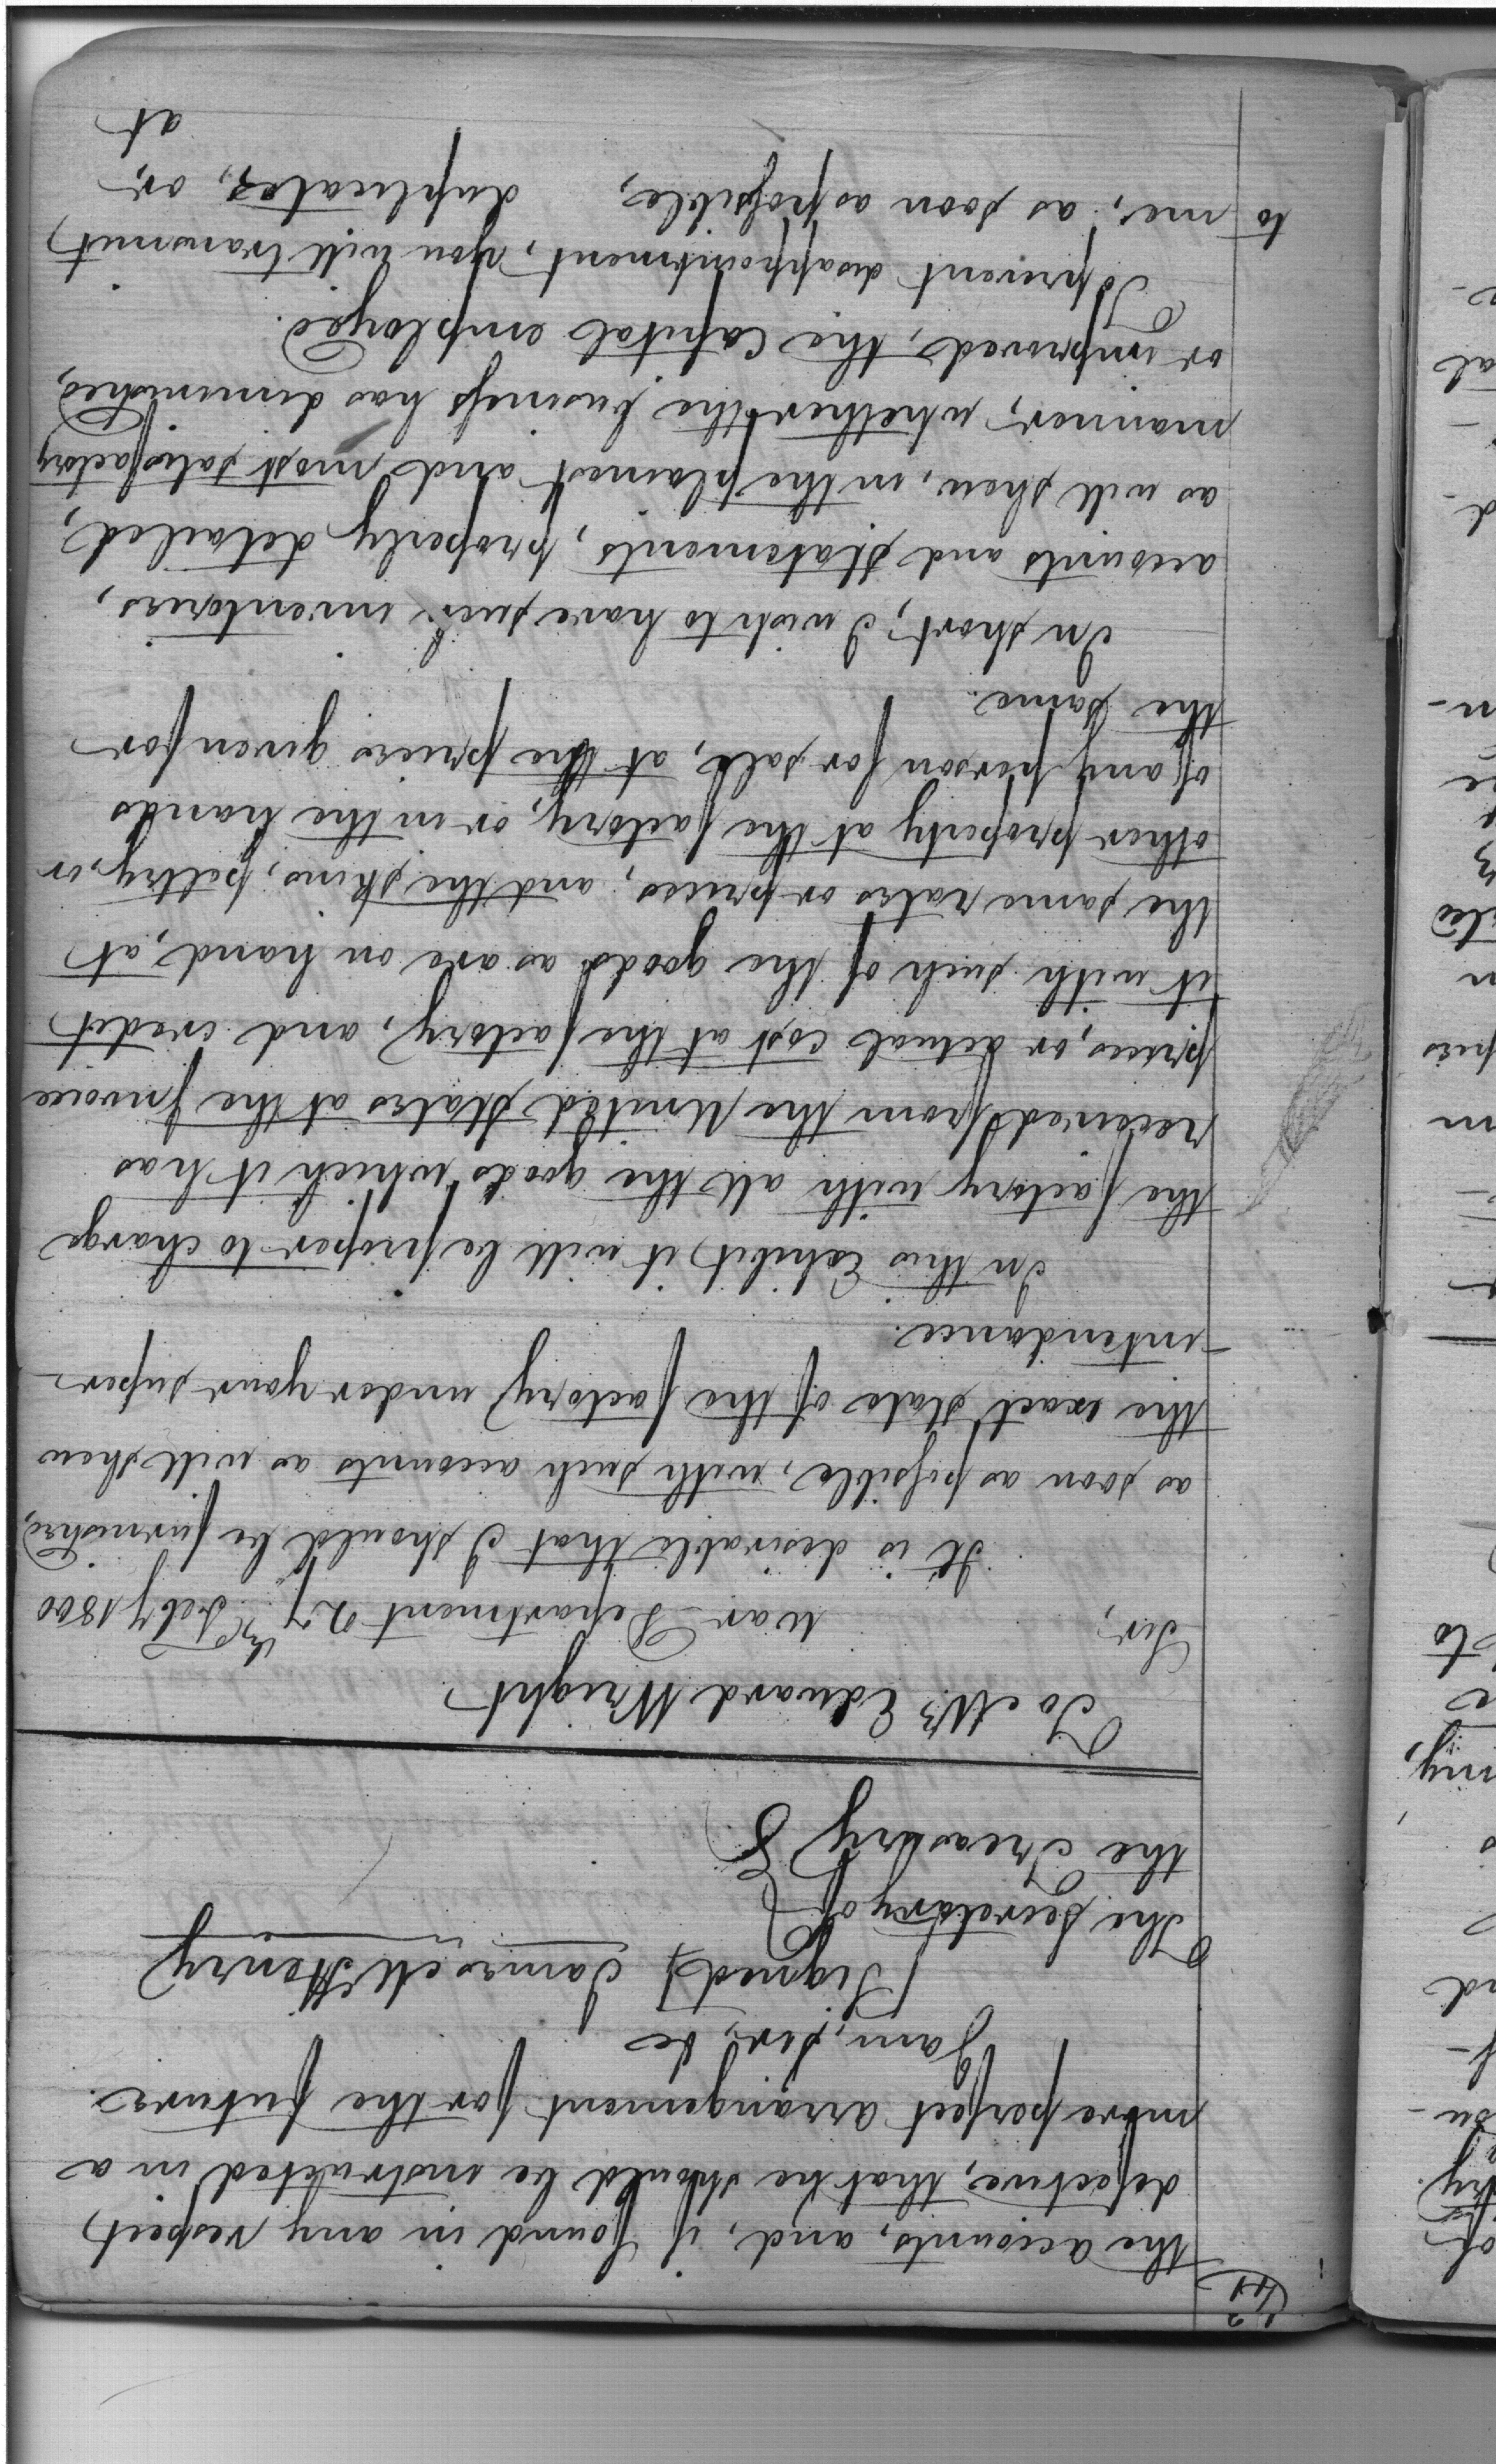 the accounts, and, if found in any respect
defective, that he should be instructed in a
more perfect arrangement for the future.
I am, sir, &c
(Signed) James McHenry
The Secretary of
the Treasury
To Mr. Edward Wright
Sir,
War Department 27 Feby 1800
It is desirable that I should be furnished,
as soon as possible, with such accounts as will shew
the exact state of the factory under your super-
-intendance.
In this Exhibit, it will be proper to charge
the factory with all the goods which it has
received from the United States at the Invoice
prices, or actual cost at the factory, and credit
it with such of the goods as are on hand, at
the same rates or prices, and the skins, peltry, or
other property at the factory, or in the hands
of any person for sale, at the prices given for
the same.
In short, I wish to have such inventories,
accounts and statements, properly detailed,
as will shew, in the plainest and most satisfactory
manner, whether the business has diminished,
or improved, the Capital employed.
To prevent disappointment, you will transmit
to me, as soon as possible, duplicates, or,
at